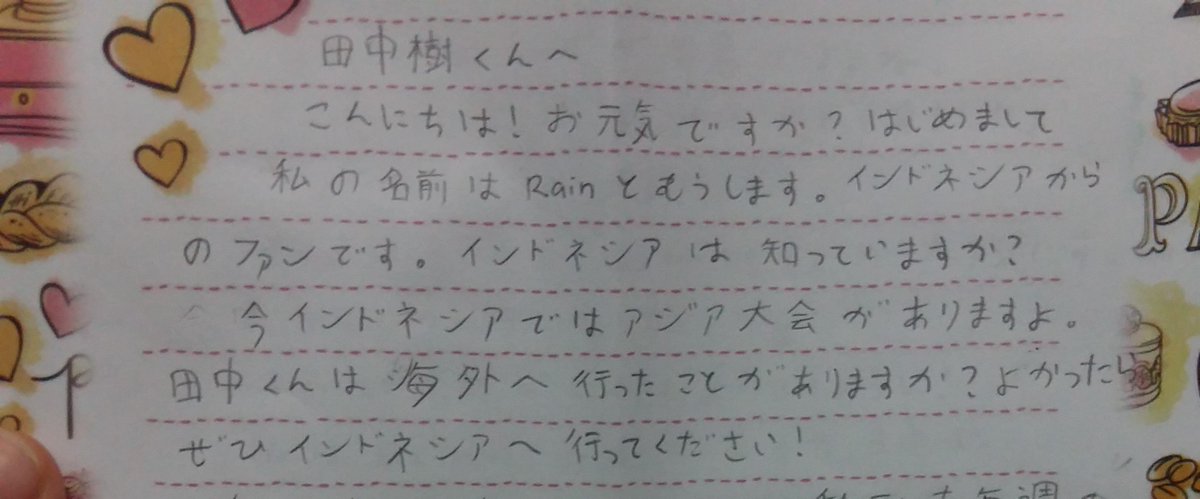 田中樹くんへ
こんにちは!お元気ですか?はじめまして
私の名前はRainともうします。インドネシアから
のファンです。インドネシアは知っていますか?
今インドネシアではアジア大会がありますよ。
田中くんは海外へ行ったことがありますか?よかったら
ぜひインドネシアへ行ってください!